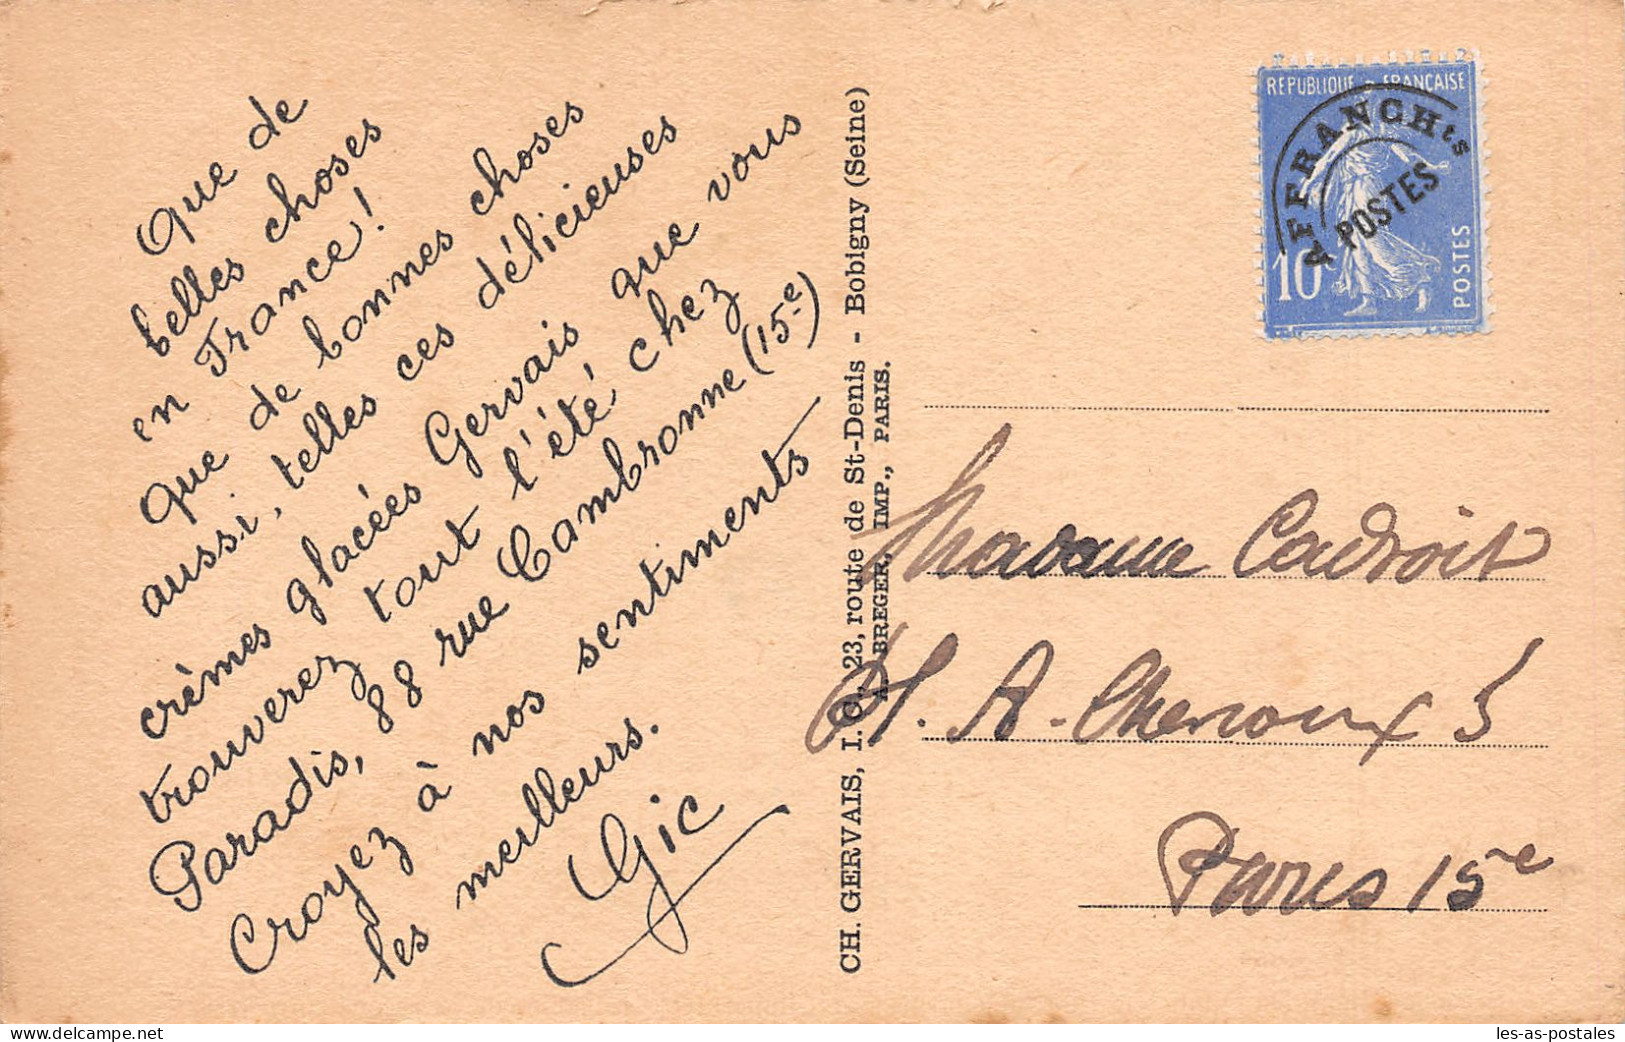 Que de
belles choses
en France!
que de bonnes choses
aussi, telles ces délicieuses
crèmes glacées Gervais que vous
trouverez tout l'été, chez
Paradis, 88 rue Cambronne (15e)
Croyez à nos sentiments
les meilleurs.
Gic
CH. GERVAIS, 23, route de St-Denis - Bobigny (Seine)
BREGER, IMP., PARIS.
REPUBLIQUE FRANÇAISE
AFFRANCHts
POSTES
10
POSTES
Madame Coudroit
A.
5
Paris 15e
les-as-postales